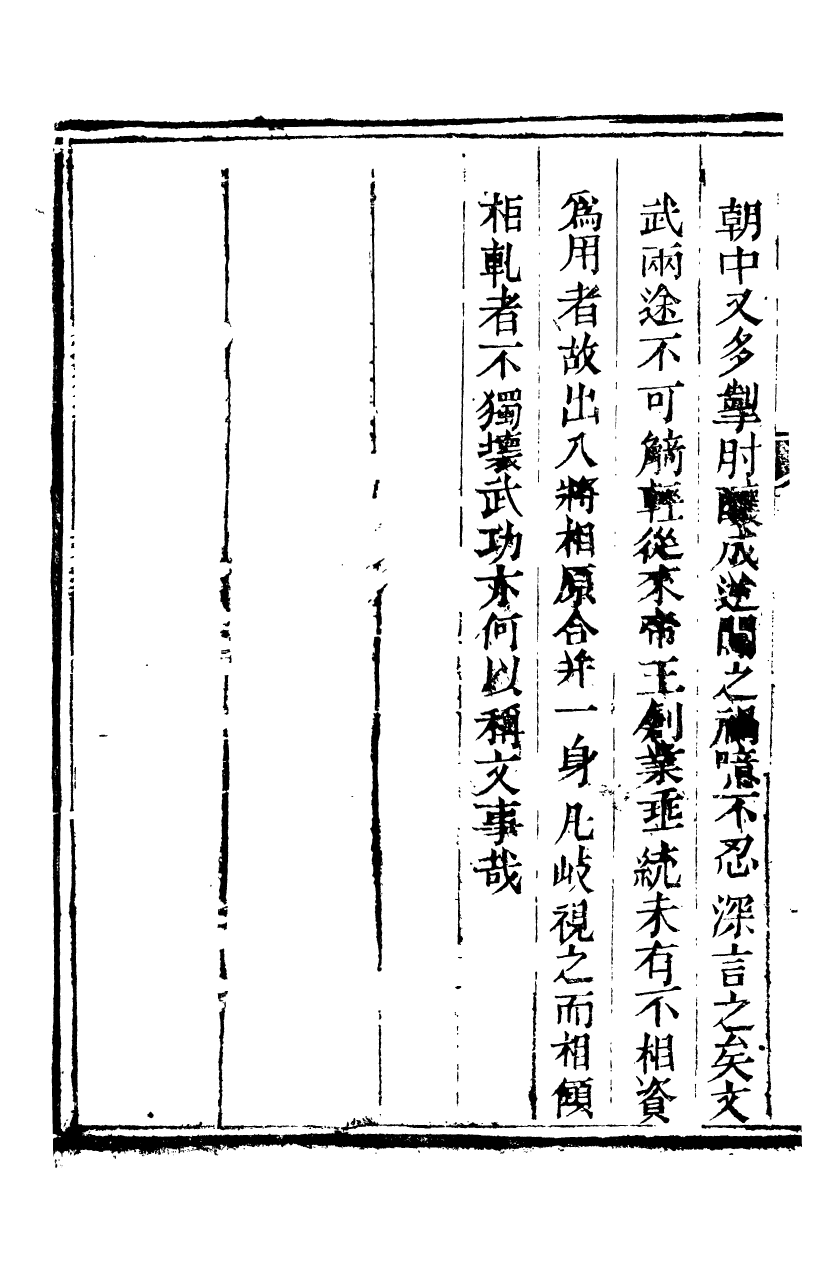 朝中又多掣肘釀成逆闖之禍噫不忍深言之矣文
武兩途不可觭輕從來帝王創業垂統未有不相資
爲用者故出入將相原合并一身凡岐視之而相傾
相軋者不獨壞武功亦何以稱文事哉